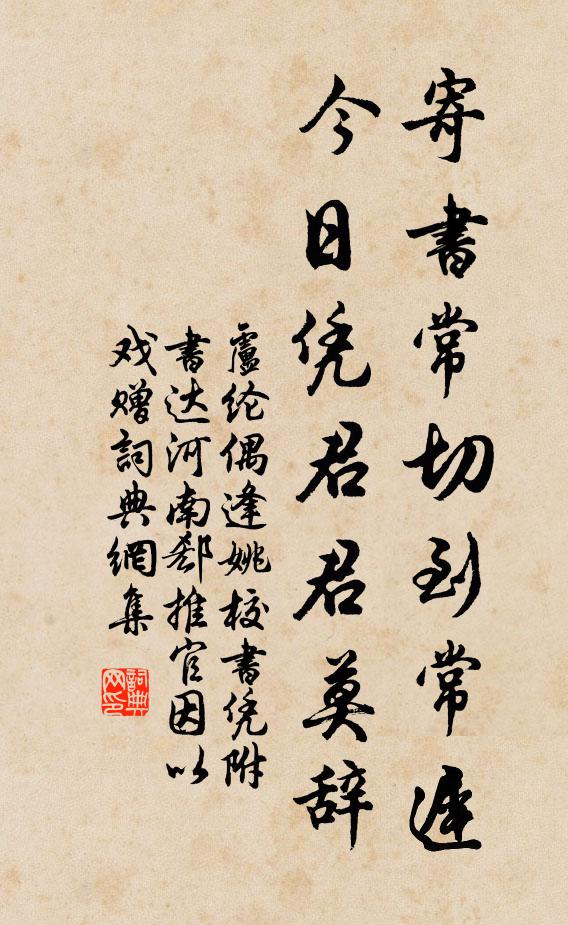 寄書常切到常遲
今日凭君君莫辞
盧纶偶逢姚校書凭附
書达河南郄推官因以
戏赠詞典網集
詞典網印